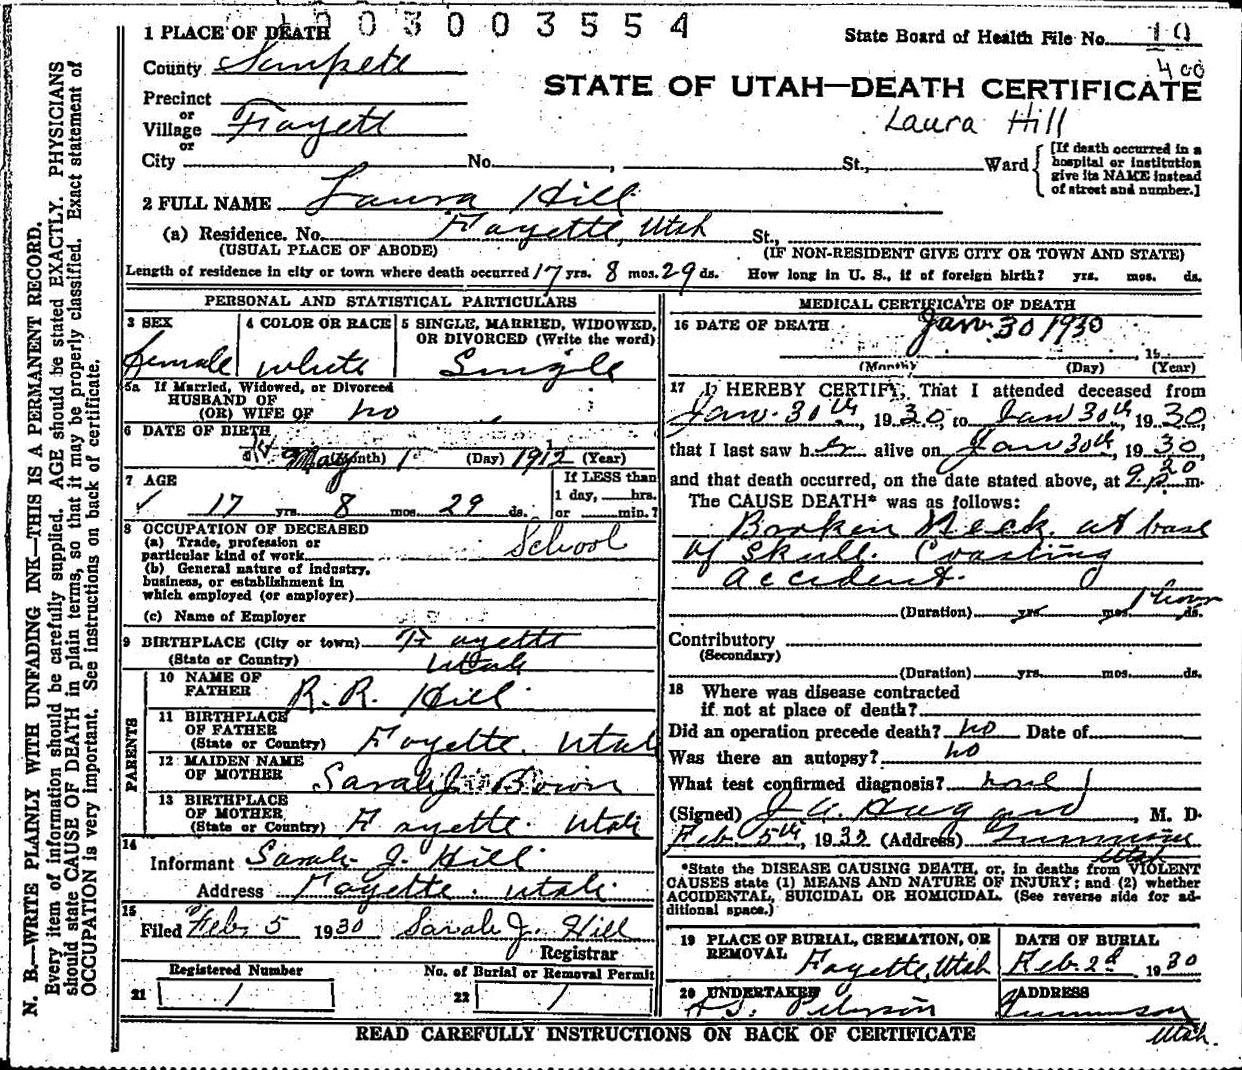 1003003554
1 PLACE OF DEATH
State Board of Health File No. 10
400
County Sanpete
STATE OF UTAH—DEATH CERTIFICATE
Precinct
or
Village Fayett
Laura Hill
or
City No. , St., Ward
[If death occurred in a
hospital or institution
give its NAME instead
of street and number.]
2 FULL NAME Laura Hill
(a) Residence. No. Fayette, Utah St.,
(USUAL PLACE OF ABODE) (IF NON-RESIDENT GIVE CITY OR TOWN AND STATE)
Length of residence in city or town where death occurred 17 yrs. 8 mos. 29 ds. How long in U. S., if of foreign birth? yrs. mos. ds.
PERSONAL AND STATISTICAL PARTICULARS
3 SEX
female
4 COLOR OR RACE
white
5 SINGLE, MARRIED, WIDOWED,
OR DIVORCED (Write the word)
Single
5a If Married, Widowed, or Divorced
HUSBAND OF
(OR) WIFE OF no
6 DATE OF BIRTH
May (Month) 1 (Day) 1912 (Year)
7 AGE
17 yrs. 8 mos. 29 ds.
If LESS than
1 day, hrs.
or min.?
8 OCCUPATION OF DECEASED
(a) Trade, profession or
particular kind of work School
(b) General nature of industry,
business, or establishment in
which employed (or employer)
(c) Name of Employer
9 BIRTHPLACE (City or town) Fayette
(State or Country) Utah
PARENTS
10 NAME OF
FATHER R. R. Hill
11 BIRTHPLACE
OF FATHER
(State or Country) Fayette. Utah
12 MAIDEN NAME
OF MOTHER Sarah J. Bown
13 BIRTHPLACE
OF MOTHER
(State or Country) Fayette. Utah
14
Informant Sarah J. Hill
Address Fayette. Utah.
15
Filed Feb. 5 1930 Sarah J. Hill
Registrar
Registered Number
21 1
No. of Burial or Removal Permit
22 1
MEDICAL CERTIFICATE OF DEATH
16 DATE OF DEATH Jan. 30 1930
(Month) (Day) (Year)
17 I HEREBY CERTIFY, That I attended deceased from
Jan. 30th, 1930, to Jan 30th, 1930,
that I last saw her alive on Jan 30th, 1930,
and that death occurred, on the date stated above, at 9 20 p. m.
The CAUSE DEATH* was as follows:
Broken Neck at base
of skull. Coasting
accident.
1 hour
(Duration) yrs. mos. ds.
Contributory
(Secondary)
(Duration) yrs. mos. ds.
18 Where was disease contracted
if not at place of death?
Did an operation precede death? no Date of
Was there an autopsy? no
What test confirmed diagnosis?
(Signed) M. D.
Feb. 5th, 1930 (Address) Gunnison
Utah
*State the DISEASE CAUSING DEATH, or, in deaths from VIOLENT
CAUSES state (1) MEANS AND NATURE OF INJURY; and (2) whether
ACCIDENTAL, SUICIDAL OR HOMICIDAL. (See reverse side for ad-
ditional space.)
19 PLACE OF BURIAL, CREMATION, OR
REMOVAL Fayette, Utah
DATE OF BURIAL
Feb. 2d, 1930
20 UNDERTAKER
ADDRESS
Gunnison
Utah.
READ CAREFULLY INSTRUCTIONS ON BACK OF CERTIFICATE
N. B.—WRITE PLAINLY WITH UNFADING INK—THIS IS A PERMANENT RECORD.
Every item of information should be carefully supplied. AGE should be stated EXACTLY. PHYSICIANS
should state CAUSE OF DEATH in plain terms, so that it may be properly classified. Exact statement of
OCCUPATION is very important. See instructions on back of certificate.